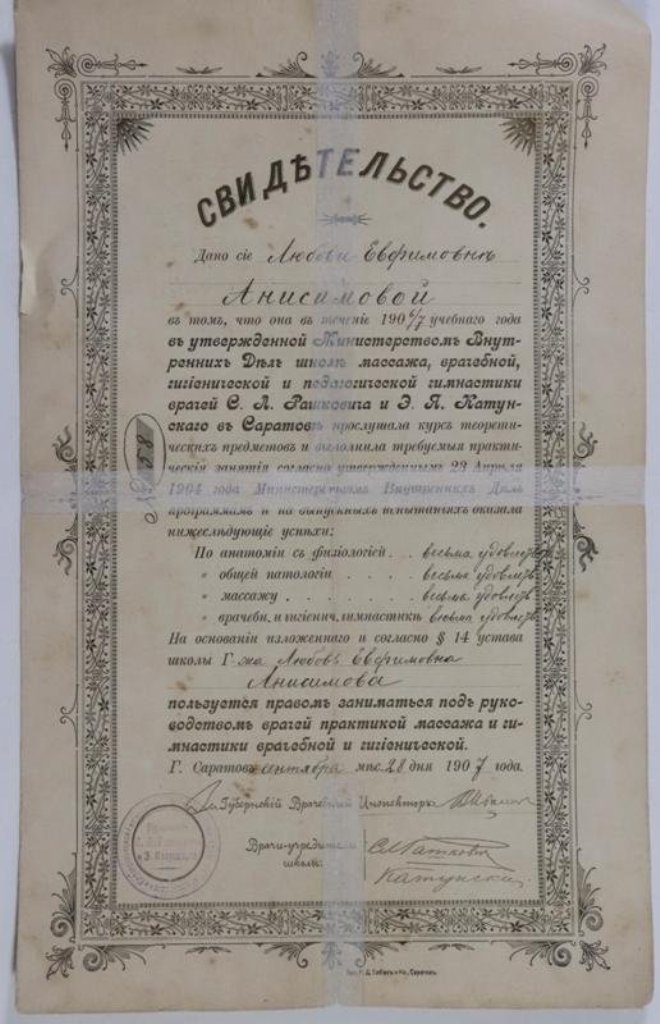 СВИДѢТЕЛЬСТВО.
Дано сіе Любови Евфимовнѣ
Анисимовой
въ томъ, что она въ теченіе 1906/7 учебнаго года
въ утвержденной Министерствомъ Внут-
реннихъ Дѣлъ школѣ массажа, врачебной,
гигіенической и педагогической гимнастики
врачей С. Л. Рашковича и Э. Я. Катун-
скаго въ Саратовѣ прослушала курсъ теорети-
ческихъ предметовъ и выполнила требуемыя практи-
ческія занятія согласно утвержденнымъ 23 Апрѣля
№ 58
1904 года Министерствомъ Внутреннихъ Дѣлъ
программамъ и на выпускныхъ испытаніяхъ оказала
нижеслѣдующіе успѣхи:
По анатоміи съ физіологіей . . весьма удовлетв
" общей патологіи . . . . . весьма удовлетв
" массажу . . . . . . . весьма удовлетв
" врачебн. и гигіенич. гимнастикѣ весьма удовлетв
На основаніи изложеннаго и согласно § 14 устава
школы Г-жа Любовь Евфимовна
Анисимова
пользуется правомъ заниматься подъ руко-
водствомъ врачей практикой массажа и ги-
мнастики врачебной и гигіенической.
Г. Саратовъ сентября мѣс. 28 дня 1907 года.
Губернскій Врачебный Инспекторъ
Врачи-учредители
школы:
Катунскій